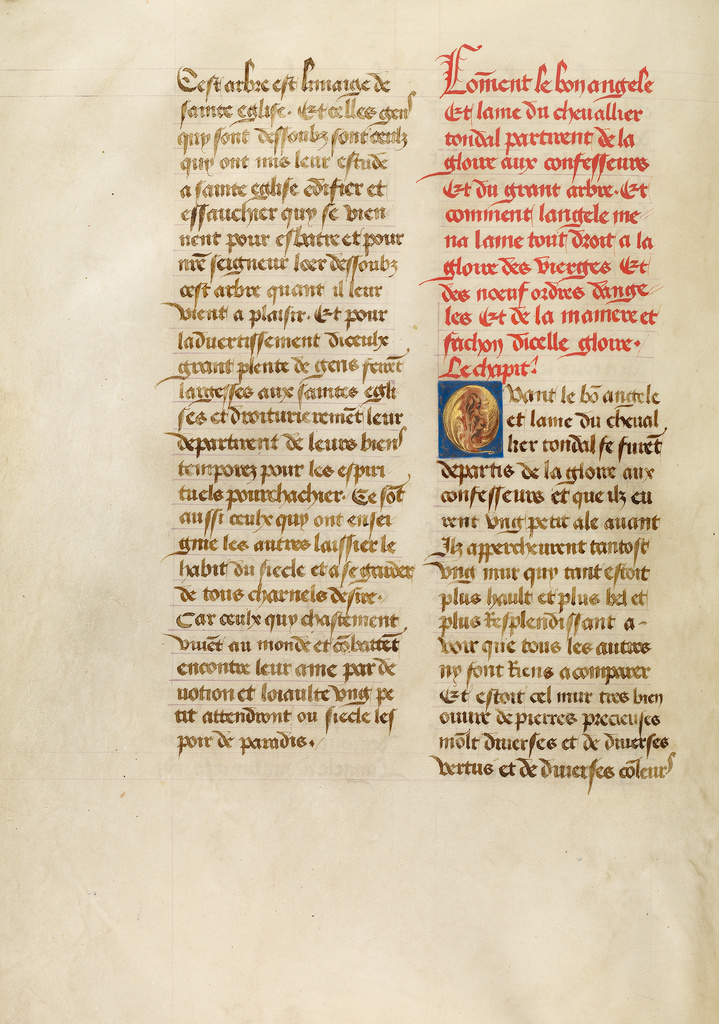 Cest arbre est limaige de
saincte eglise. Et celles gens
quy sont dessoubz sont ceulz
quy ont mis leur estude
a saincte eglise edifier et
essauchier quy se vien
nent pour esbatre et pour
nr̃e seigneur loer dessoubz
cest arbre quant il leur
vient a plaisir. Et pour
laduertissement diceulx
grant plente de gens feirẽt
largesses aux sainctes egli
ses et droiturieremẽt leur
departirent de leurs biens
temporez pour les espiri
tuels pourchachier. Ce sõt
aussi ceulx quy ont ensei
gnie les autres laissier le
habit du siecle et a se garder
de tous charnels desirs.
Car ceulx quy chastement
viuẽt au monde et cõbattẽt
encontre leur ame par de
uotion et loiaulte vng pe
tit attendront ou siecle les
poir de paradis.
Com̃ent le bon angele
Et lame du cheuallier
tondal partirent de la
gloire aux confesseurs
Et du grant arbre. Et
comment langele me
na lame tout droit a la
gloire des vierges Et
des nœuf ordres dange
les Et de la maniere et
fachon dicelle gloire.
Le chapit̃.
Quant le bõ angele
et lame du cheual
lier tondal se furẽt
departis de la gloire aux
confesseurs et que ilz eu
rent vng petit ale auant
Ilz appercheurent tantost
vng mur quy tant estoit
plus hault et plus bel et
plus Resplendissant a-
voir que tous les autres
ny font Riens a comparer
Et estoit cel mur tres bien
ouure de pierres precieuses
mõlt diuerses et de diuerses
vertus et de diuerses coleurs